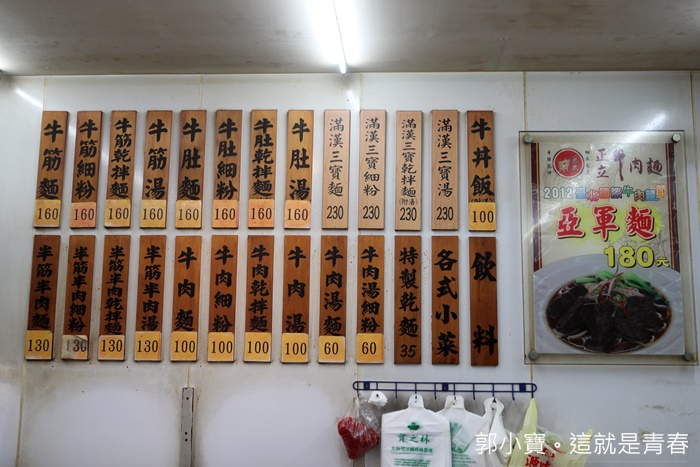 牛筋麵 160
牛筋細粉 160
牛筋乾拌麵 160
牛筋湯 160
牛肚麵 160
牛肚細粉 160
牛肚乾拌麵 160
牛肚湯 160
滿漢三寶麵 230
滿漢三寶細粉 230
滿漢三寶乾拌麵(附湯) 230
滿漢三寶湯 230
牛丼飯(附湯) 100
半筋半肉麵 130
半筋半肉細粉 130
半筋半肉乾拌麵 130
半筋半肉湯 130
牛肉麵 100
牛肉細粉 100
牛肉乾拌麵 100
牛肉湯 100
牛肉湯麵 60
牛肉湯細粉 60
特製乾麵 35
各式小菜
飲料
正立牛肉麵
2012臺北國際牛肉麵節
亞軍麵
180元
賀之林
郭小寶。這就是青春